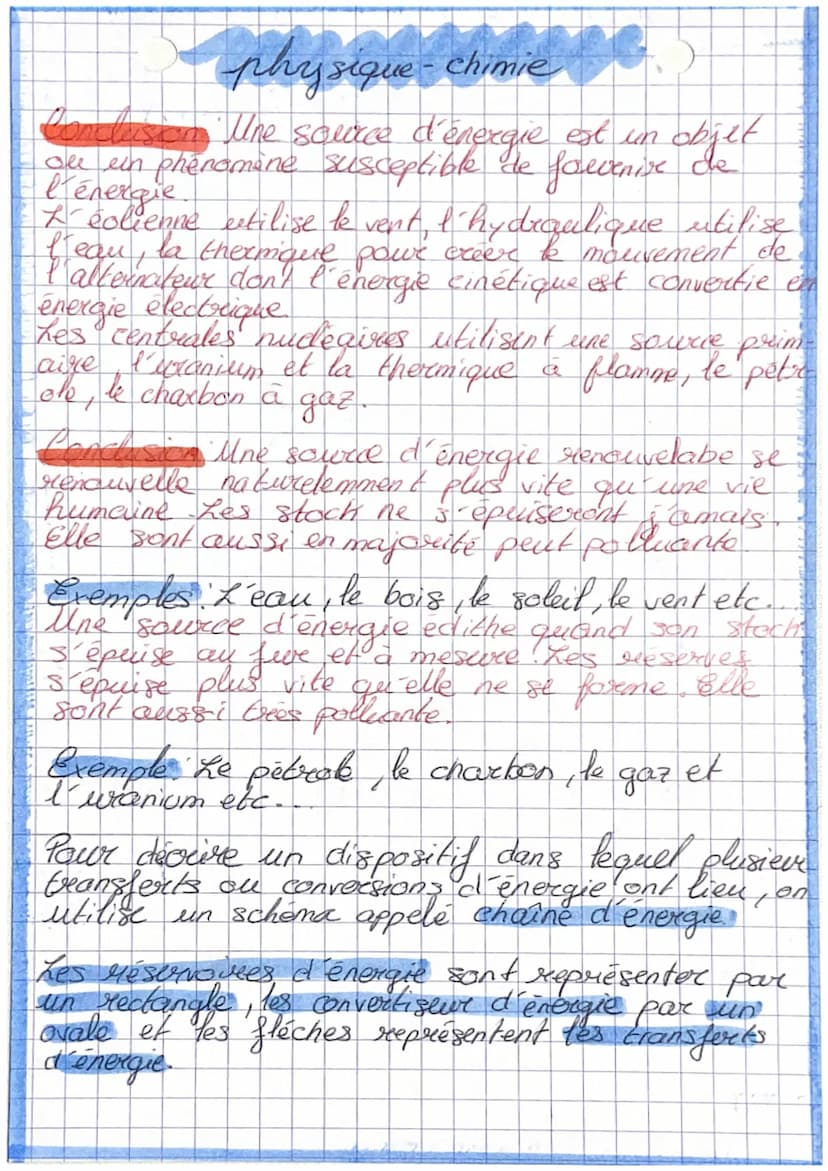 physique-chimie
Conclusion: Une source d'énergie est un objet
ou un phénomène susceptible de fournir de
l'énergie.
L'éolienne utilise le vent, l'hydraulique utilise
l'eau, la thermique pour créer le mouvement de
l'alternateur dont l'énergie cinétique est convertie en
énergie électrique.
Les centrales nucléaires utilisent une source prim-
aire, l'uranium et la thermique à flamme, le pétr-
ole, le charbon à gaz.
Conclusion: Une source d'énergie renouvelabe se
renouvelle naturelemment plus vite qu'une vie
humaine. Les stock ne s'épuiseront jamais.
Elle sont aussi en majorité peut polluante.
Exemples: L'eau, le bois, le soleil, le vent etc...
Une source d'énergie édithe quand son stock
s'épuise au fur et à mesure. Les réserves
s'épuise plus vite qu'elle ne se forme. Elle
sont aussi très polluante.
Exemple: Le pétrole, le charbon, le gaz et
l'uranium etc...
Pour décrire un dispositif dans lequel plusieur
transferts ou conversions d'énergie ont lieu, on
utilise un schéma appelé chaîne d'énergie.
Les réservoires d'énergie sont représenter par
un rectangle, les convertiseur d'énergie par un
ovale et les flèches représentent les transferts
d'énergie.